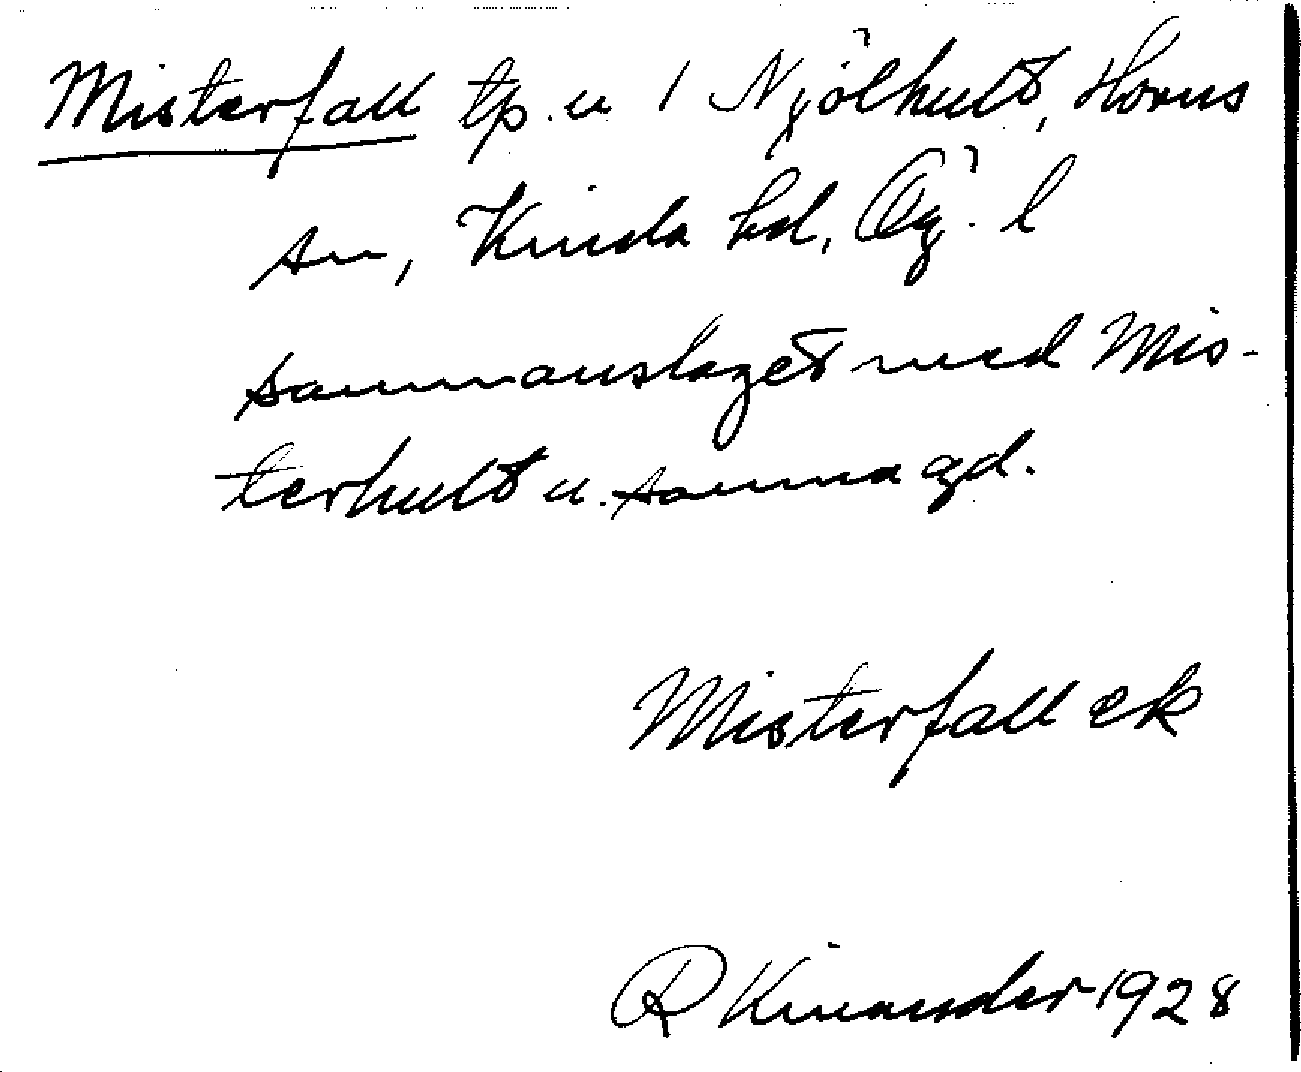 Misterfall tp. u 1 Njölhult, Horns
sn, Kinda hd, Ög. l
sammanslaget med Mis-
terhult u. samma gd.
Misterfall ek
R Kinander 1928